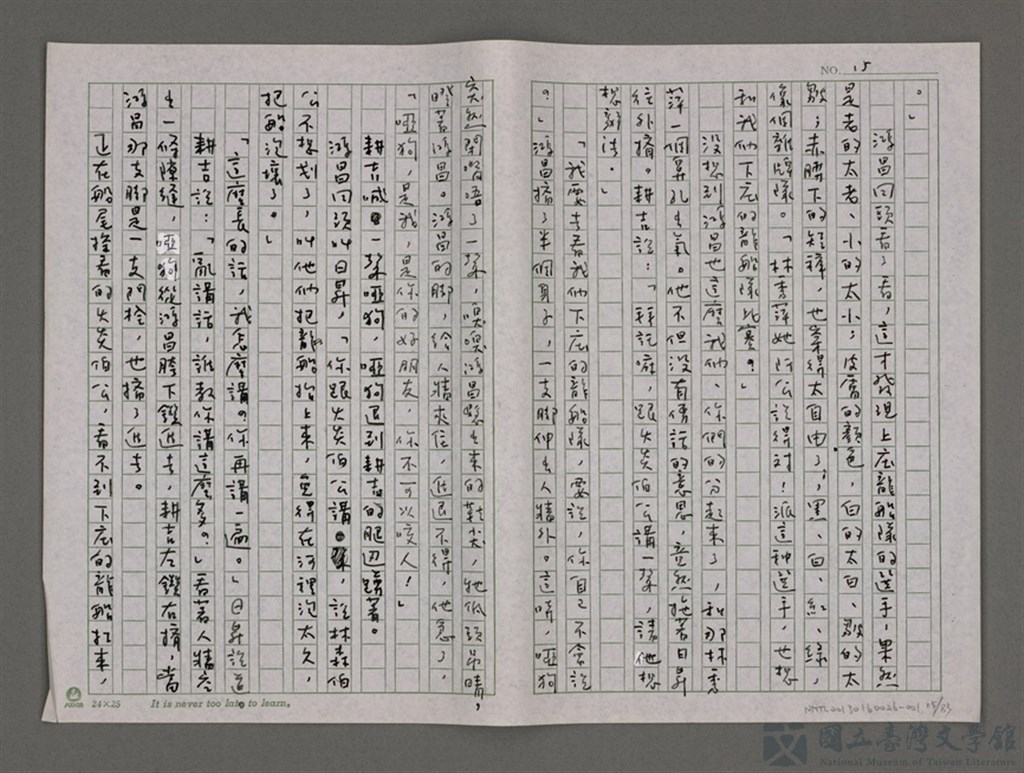 NO. 15
。」
鴻昌回頭看了看，這才發現上庄龍船隊的選手，果然
是老的太老、小的太小；皮膚的顏色，白的太白、黝的太
黝；赤膊下的短褲，也崋得太自由了，黑、白、紅、綠，
像個雜牌隊。「林秀萍她阿公說得對！派這種選手，也想
和我們下庄的龍船隊比賽。」
沒想到鴻昌也這麼我們、你們的分起來了，和那林秀
萍一個鼻孔出氣。他不但沒有傳話的意思，竟然拖著日昇
往外擠。耕吉說：「拜託啦，跟火炎伯公講一聲，請他想
想辦法。」
「我要去看我們下庄的龍船隊，要說，你自己不會說
？」鴻昌擠了半個身子，一支腳伸出人牆外。這時，啞狗
突然開嘴唔了一聲，嗅嗅鴻昌懸出來的鞋尖，牠低頭吊睛，
瞪著鴻昌。鴻昌的腳，給人牆夾住，進退不得，他急了，
「啞狗，是我，是你的好朋友，你不可以咬人！」
耕吉喊一聲啞狗，啞狗退到耕吉的腿邊蹲著。
鴻昌回頭叫日昇，「你跟火炎伯公講，說林森伯
公不想划了，叫他們把龍船抬上來，免得在河裡泡太久，
把船泡壞了。」
「這麼長的話，我怎麼講。你再講一遍。」日昇說道。
耕吉說：「亂講話，誰教你講這麼多。」看著人牆空
出一條隙縫，啞狗從鴻昌胯下鑽進去，耕吉左鑽右擠，當
鴻昌那支腳是一支門栓，也擠了進去。
正在船尾撐著的火炎伯公，看不到下庄的龍船打來，
24×25
It is never too late to learn.
NMTL20130160026-001 15/83
國立臺灣文學館
National Museum of Taiwan Literature